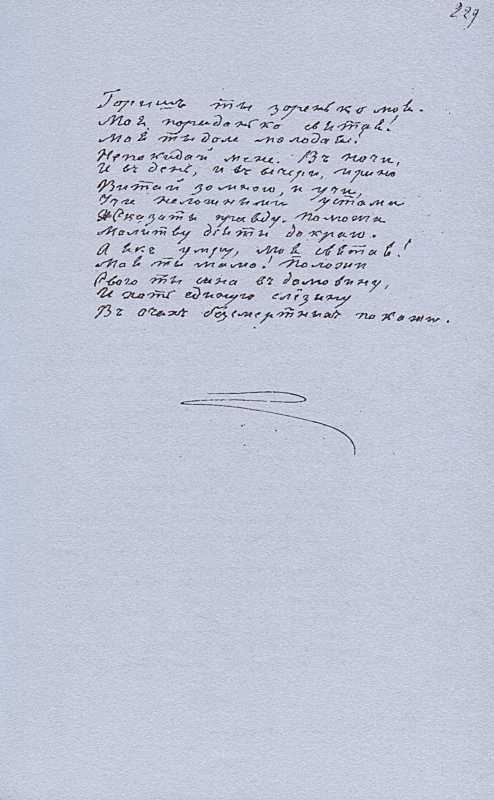 229
Горишъ ты зоренько моя.
Моя порадонько святая!
Моя ты доле молодая!
Непокидай мене. Въ ночи,
И въ день, и въ вечери, и рано
Витай зо мною, и учи,
Учи неложными устами
Сказаты правду. Поможы
Молитву діяти до краю.
А якъ умру, моя святая!
Моя ты мамо! Положи
Свого ты сына въ домовину,
И хоть единую слёзину
Въ очахъ безсмертныхъ покажи.